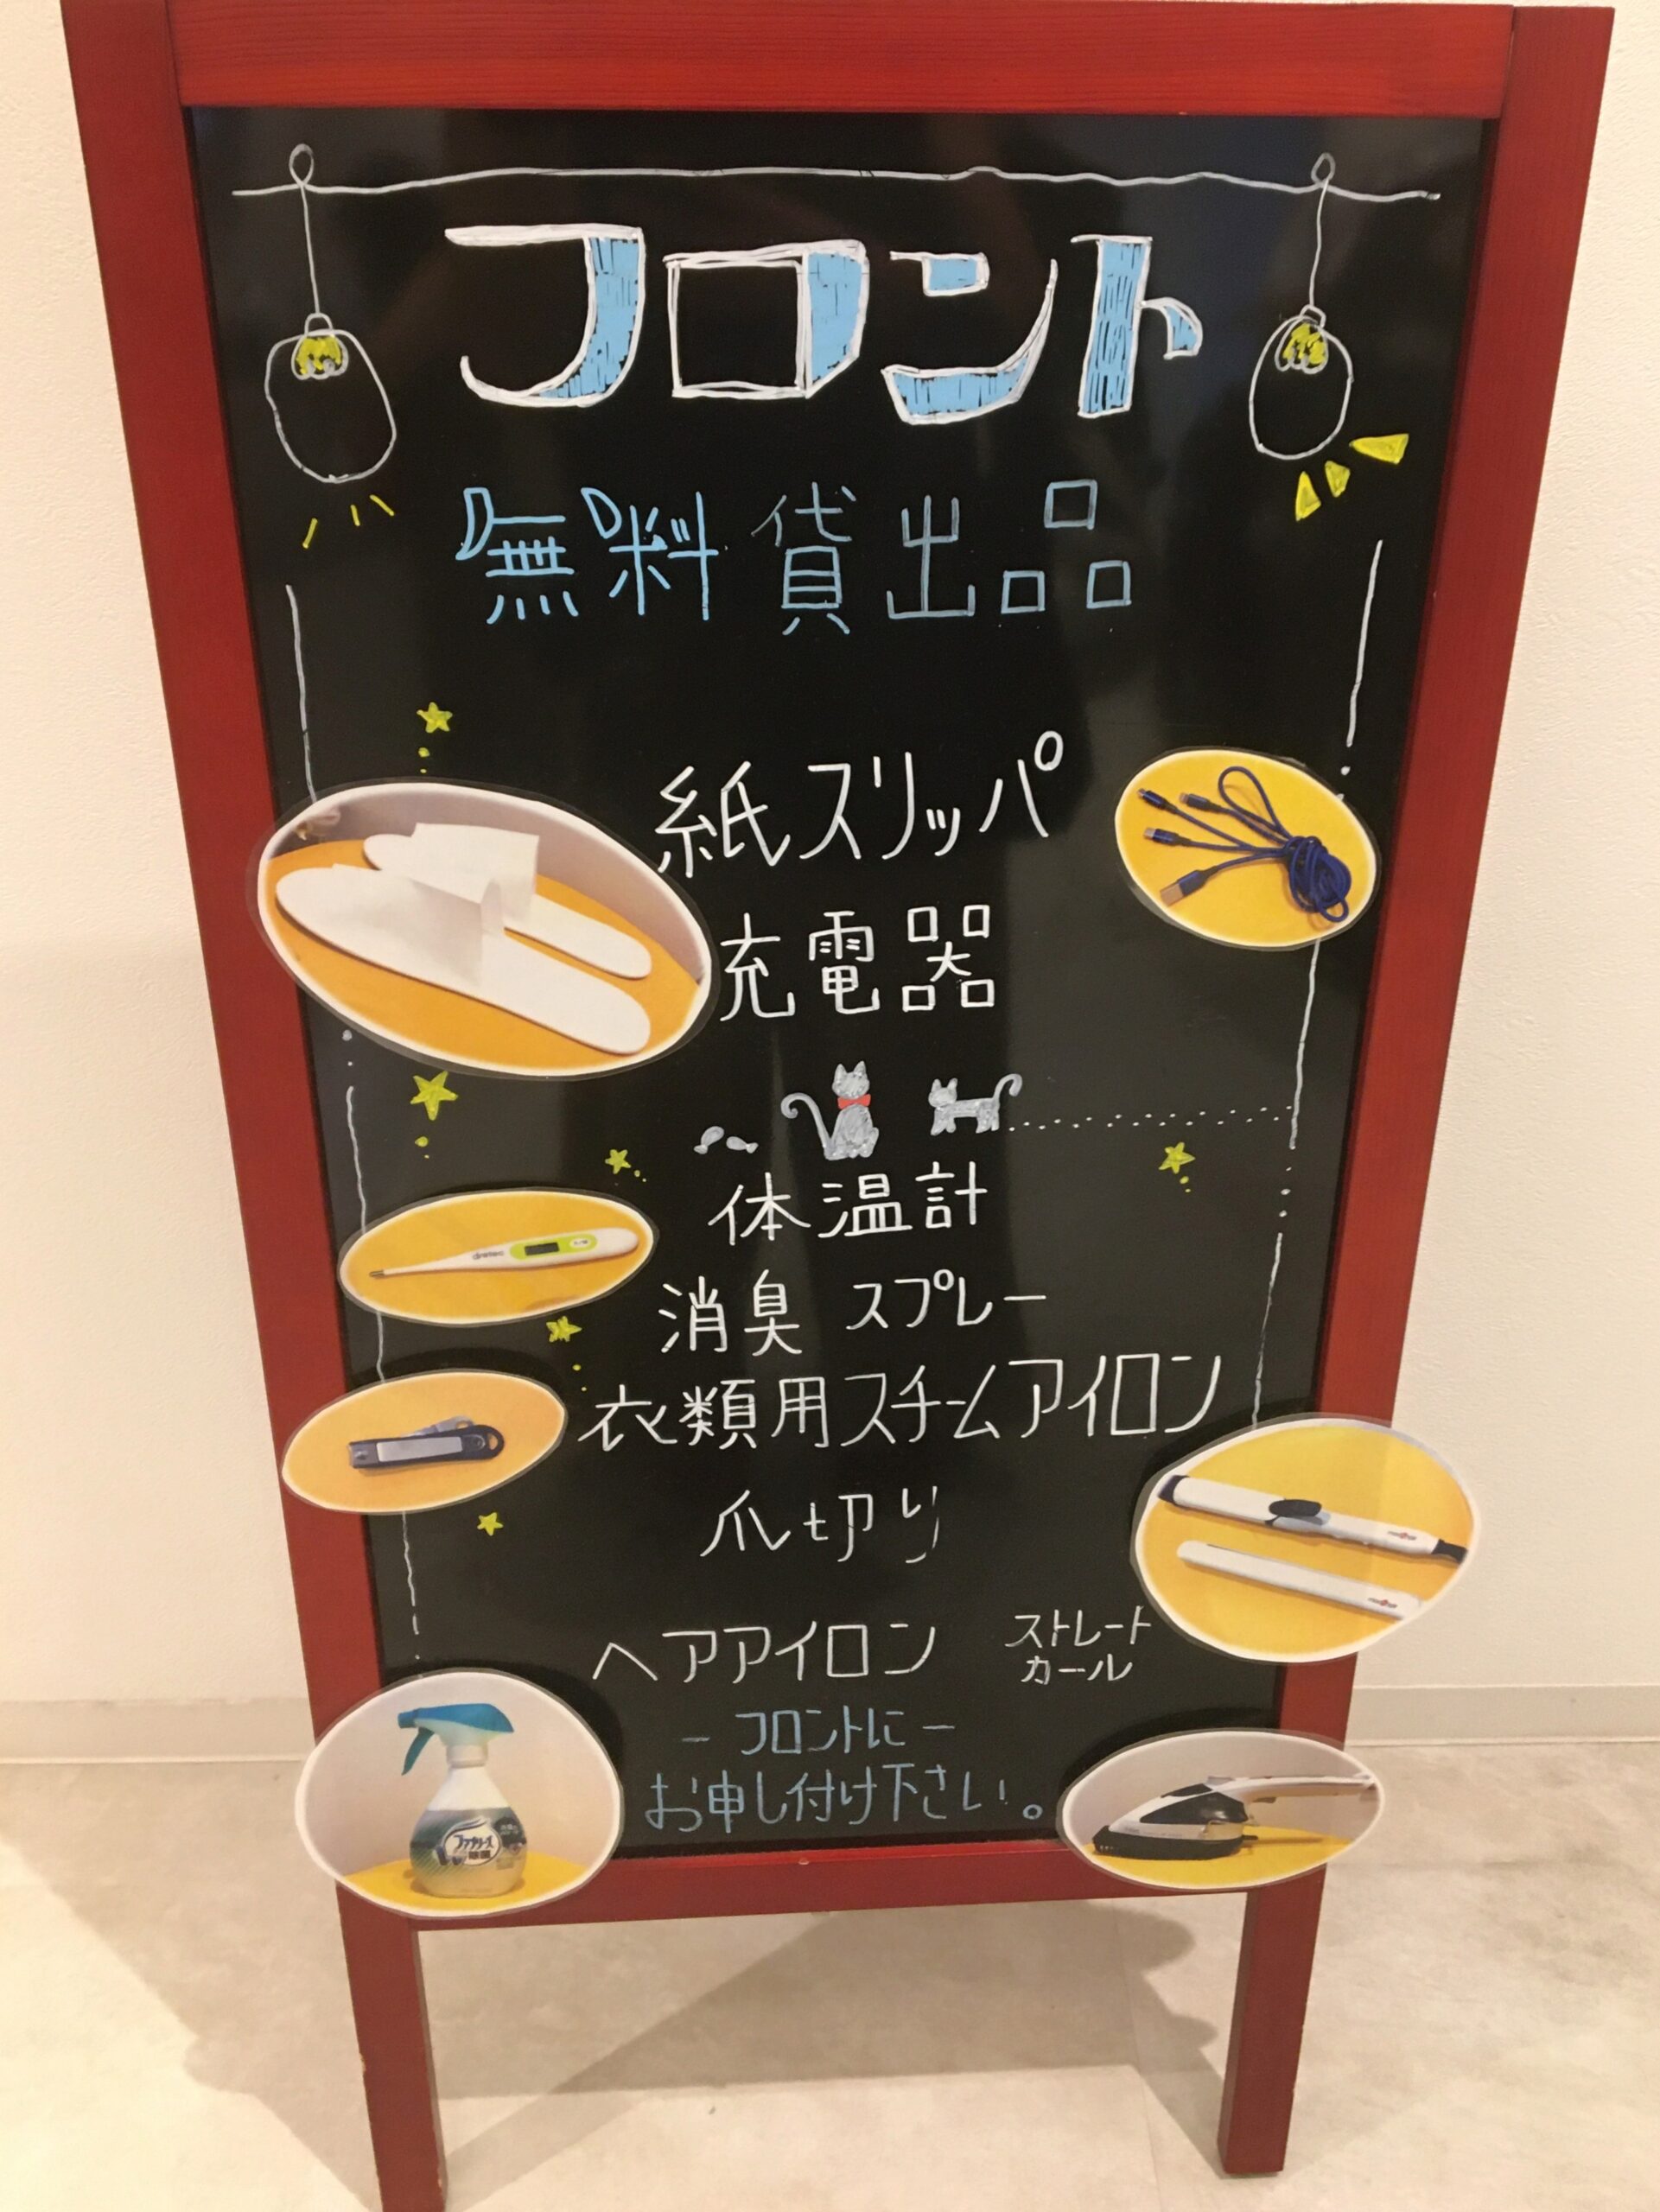 フロント
無料貸出品
紙スリッパ
充電器
体温計
消臭 スプレー
衣類用スチームアイロン
爪切り
ヘアアイロン ストレート
カール
－フロントに－
お申し付け下さい。
dretec
ファブリーズ
除菌